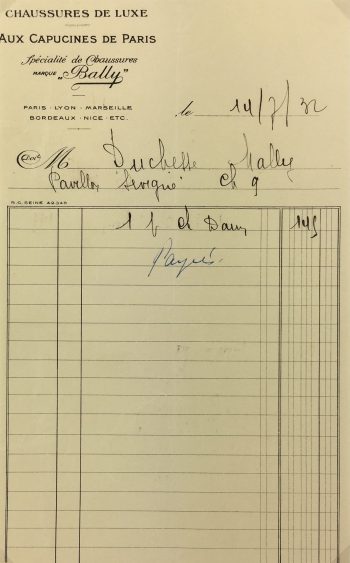 CHAUSSURES DE LUXE
AUX CAPUCINES DE PARIS
Spécialité de Chaussures
MARQUE „Bally"
PARIS - LYON - MARSEILLE
BORDEAUX - NICE ETC.
le 14/7/32
Doit M Duchesse Mally
Pavillon Sevigné Ch 9
R.C. SEINE 49.345
1 p Ch Dam 145
Payés